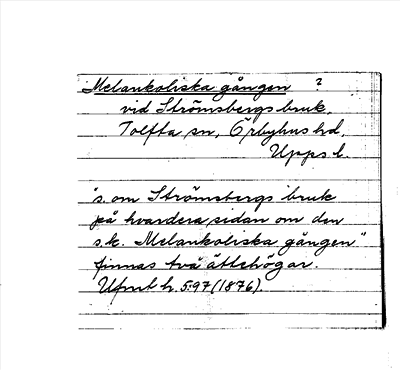 Melankoliska gången ?
vid Strömsbergs bruk,
Tolfta sn, Örbyhus hd,
Upps l.
"s. om Strömsbergs bruk
på hvardera sidan om den
s.k. Melankoliska gången"
finnas två ättehögar.
Upml h. 5:97 (1876).